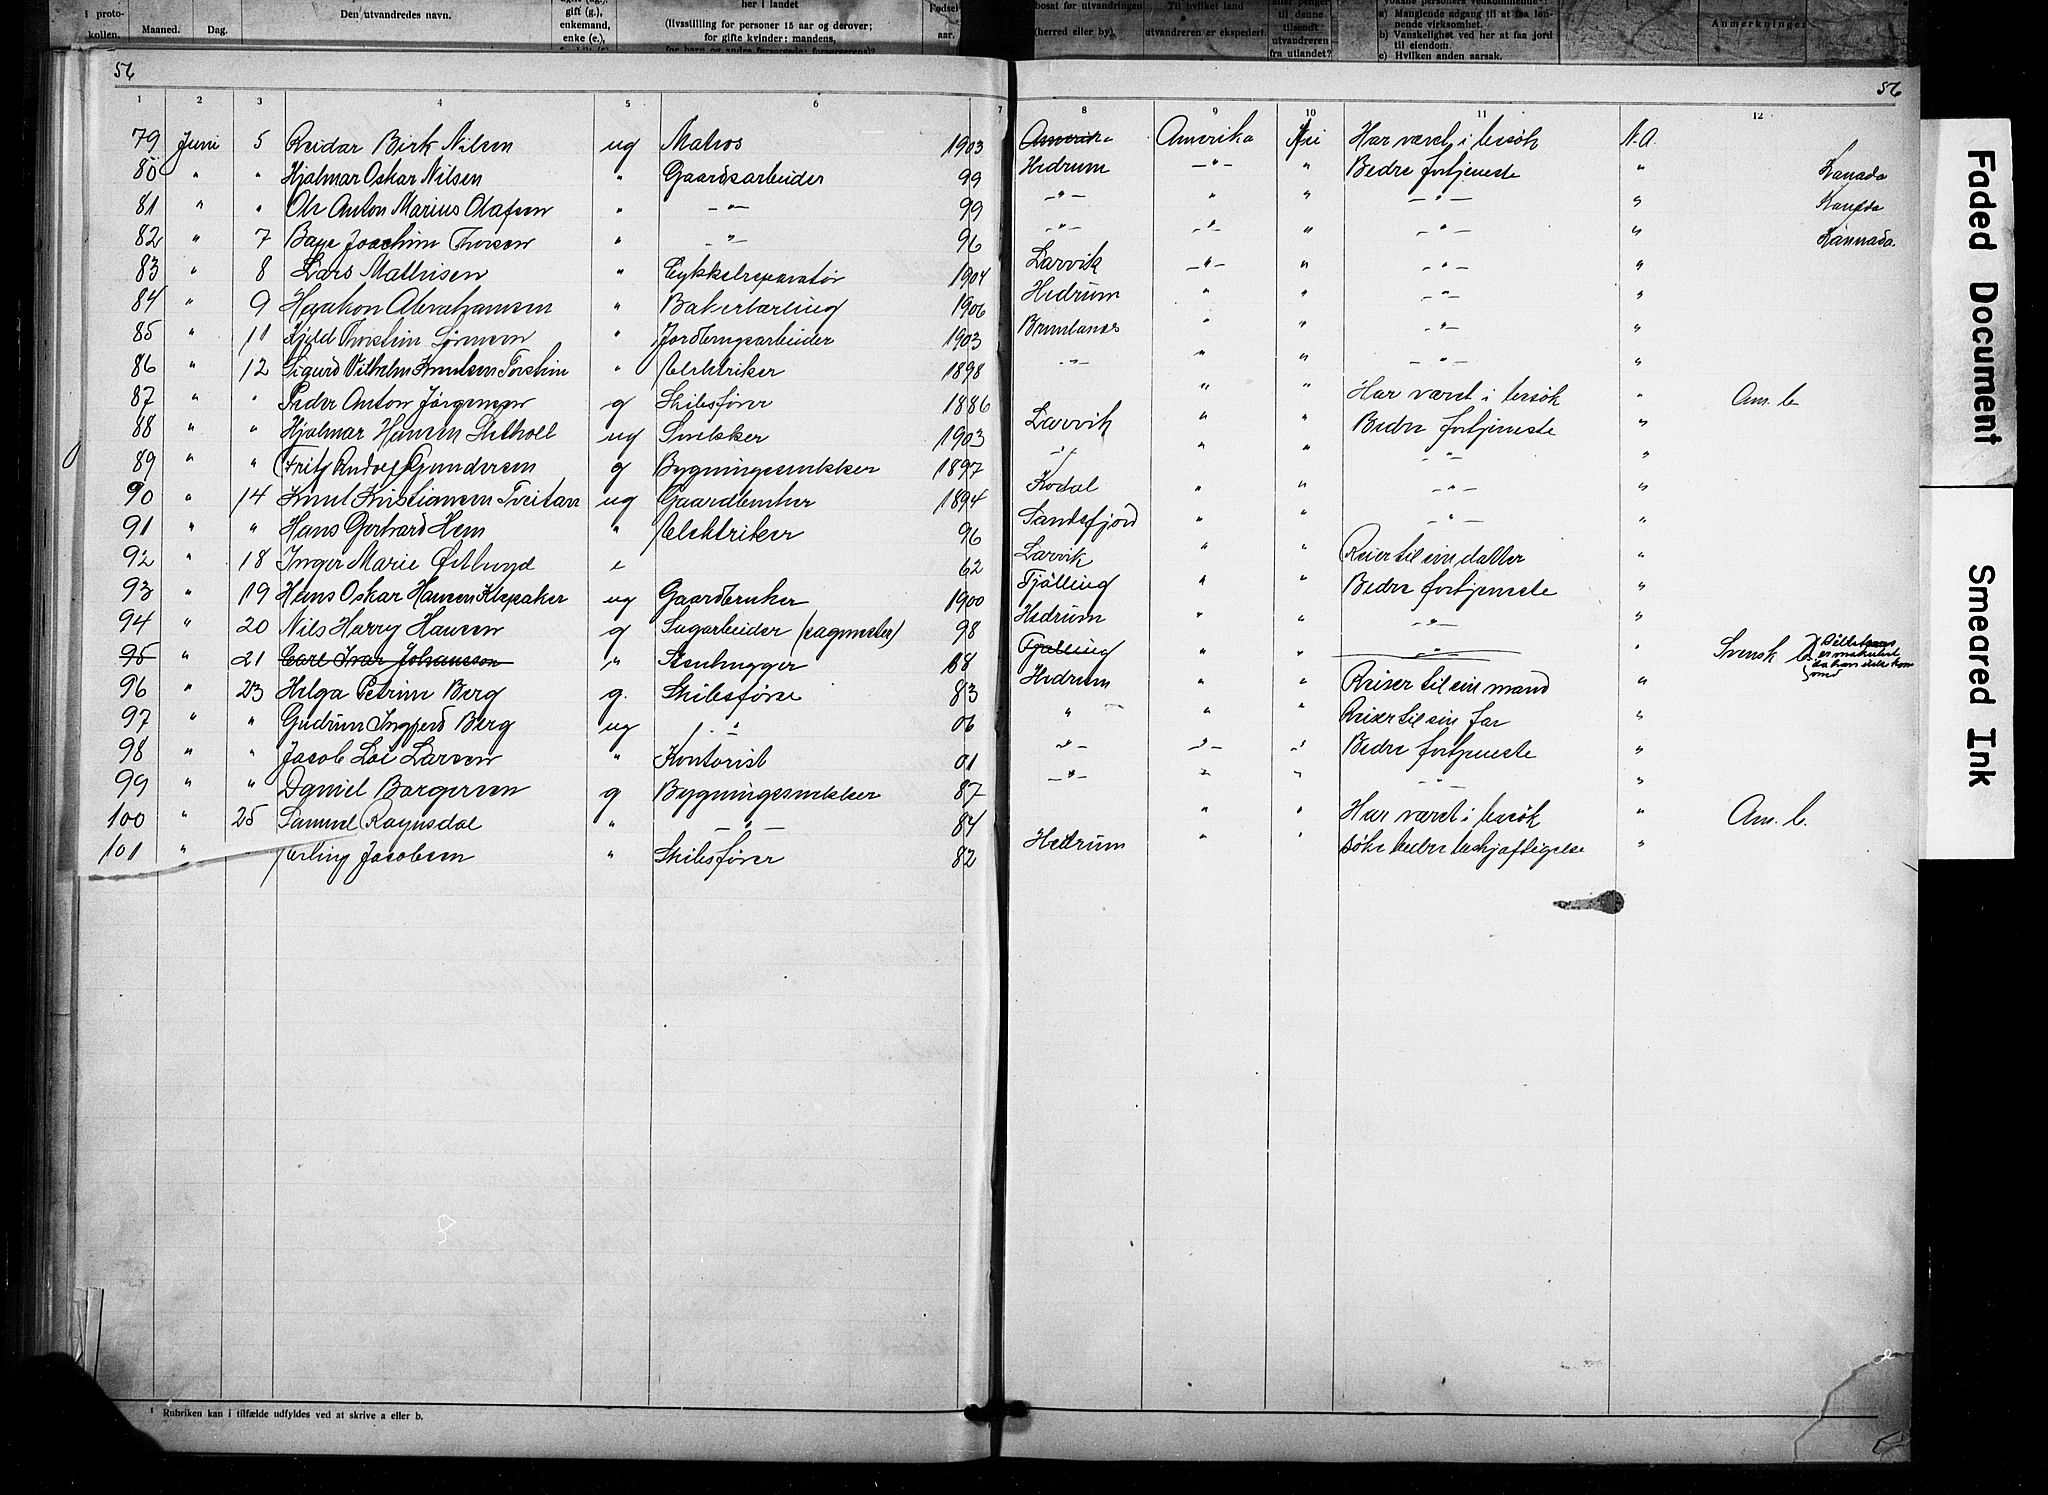 i proto-
kollen.
Maaned.
Dag.
Den utvandredes navn.
gift (g.),
enkemand,
enke (e.),
her i landet
(livsstilling for personer 15 aar og derover;
for gifte kvinder: mandens,
Fødsel
aar.
bosat før utvandringen
(herred eller by).
Til hvilket land
utvandreren er ekspedert.
til denne
tilsendt
utvandreren
fra utlandet?
a) Manglende adgang til at faa løn-
nende virksomhet.
b) Vanskelighet ved her at faa jord
til eiendom.
c) Hvilken anden aarsak.
Anmerkninger
56 56
1 2 3 4 5 6 7 8 9 10 11 12
79 Juni 5 Reidar Birk Nilsen ug Matros 1903 Amerika Amerika Nei Har været i besök N.A.
80 " " Hjalmar Oskar Nilsen " Gaardsarbeider 99 Hedrum -"- " Bedre fortjeneste " Kanada
81 " " Ole Anton Marius Olafsen " -"- 99 -"- " " -"- " Kanada
82 " 7 Joachim Thorsen " -"- 96 -"- -"- " -"- " Kannada.
83 " 8 Lars Mathisen " Cykkelreparatør 1904 Larvik -"- " -"- "
84 " 9 Haakon Abrahamsen " Bakerlærling 1906 Hedrum " " -"- "
85 " 11 Kjeld Torstein Sörensen " Jordbrugsarbeider 1903 Brunlanes " " -"- "
86 " 12 Sigurd Vilhelm Knutsen Torstein " Elektriker 1898 -"- " " -"- "
87 " " Peder Anton Jörgensen g Skibsfører 1886 " " Har været i besök " Am. b.
88 " " Hjalmar Hansen ug Snekker 1903 Larvik " " Bedre fortjeneste "
89 " " Fritz Rudolf Gundersen g Bygningssnekker 1897 -"- " " -"- "
90 " 14 Knut Kristiansen Tveitan ug Gaardbruker 1894 Kodal " " -"- "
91 " " Hans Gerhard Hem " Elektriker 96 Sandefjord " " -"- "
92 " 18 Inger Marie e 62 Larvik " " Reiser til sin datter "
93 " 19 Hans Oskar Hansen Klepaker ug Gaardbruker 1900 Tjølling " " Bedre fortjeneste "
94 " 20 Nils Harry Hansen g Sagarbeider (sagmester) 98 Hedrum " " -"- "
95 " 21 Carl Ivar Johansson " Stenhugger 68 Tjølling " " -"- " Svensk b. Billetten er makulert da han ikke kom
96 " 23 Helga Petrine Berg g. Skibsfører 83 Hedrum " " Reiser til sin mand "
97 " " Gudrun Ingjerd Berg ug -"- 06 " " " Reiser til sin far "
98 " " Jacob Loe Larsen " Kontorist 01 -"- -"- " Bedre fortjeneste "
99 " " Daniel Borgersen g Bygningssnekker 87 -"- " " -"- "
100 " 25 Samuel Ragnsdal " -"- 84 " " Har været i besök " Am. b.
101 " " Erling Jacobsen " Skibsfører 82 Hedrum " " Söke bedre beskjæftigelse "
¹ Rubriken kan i tilfælde udfyldes ved at skrive a eller b.
Faded Document
Smeared Ink